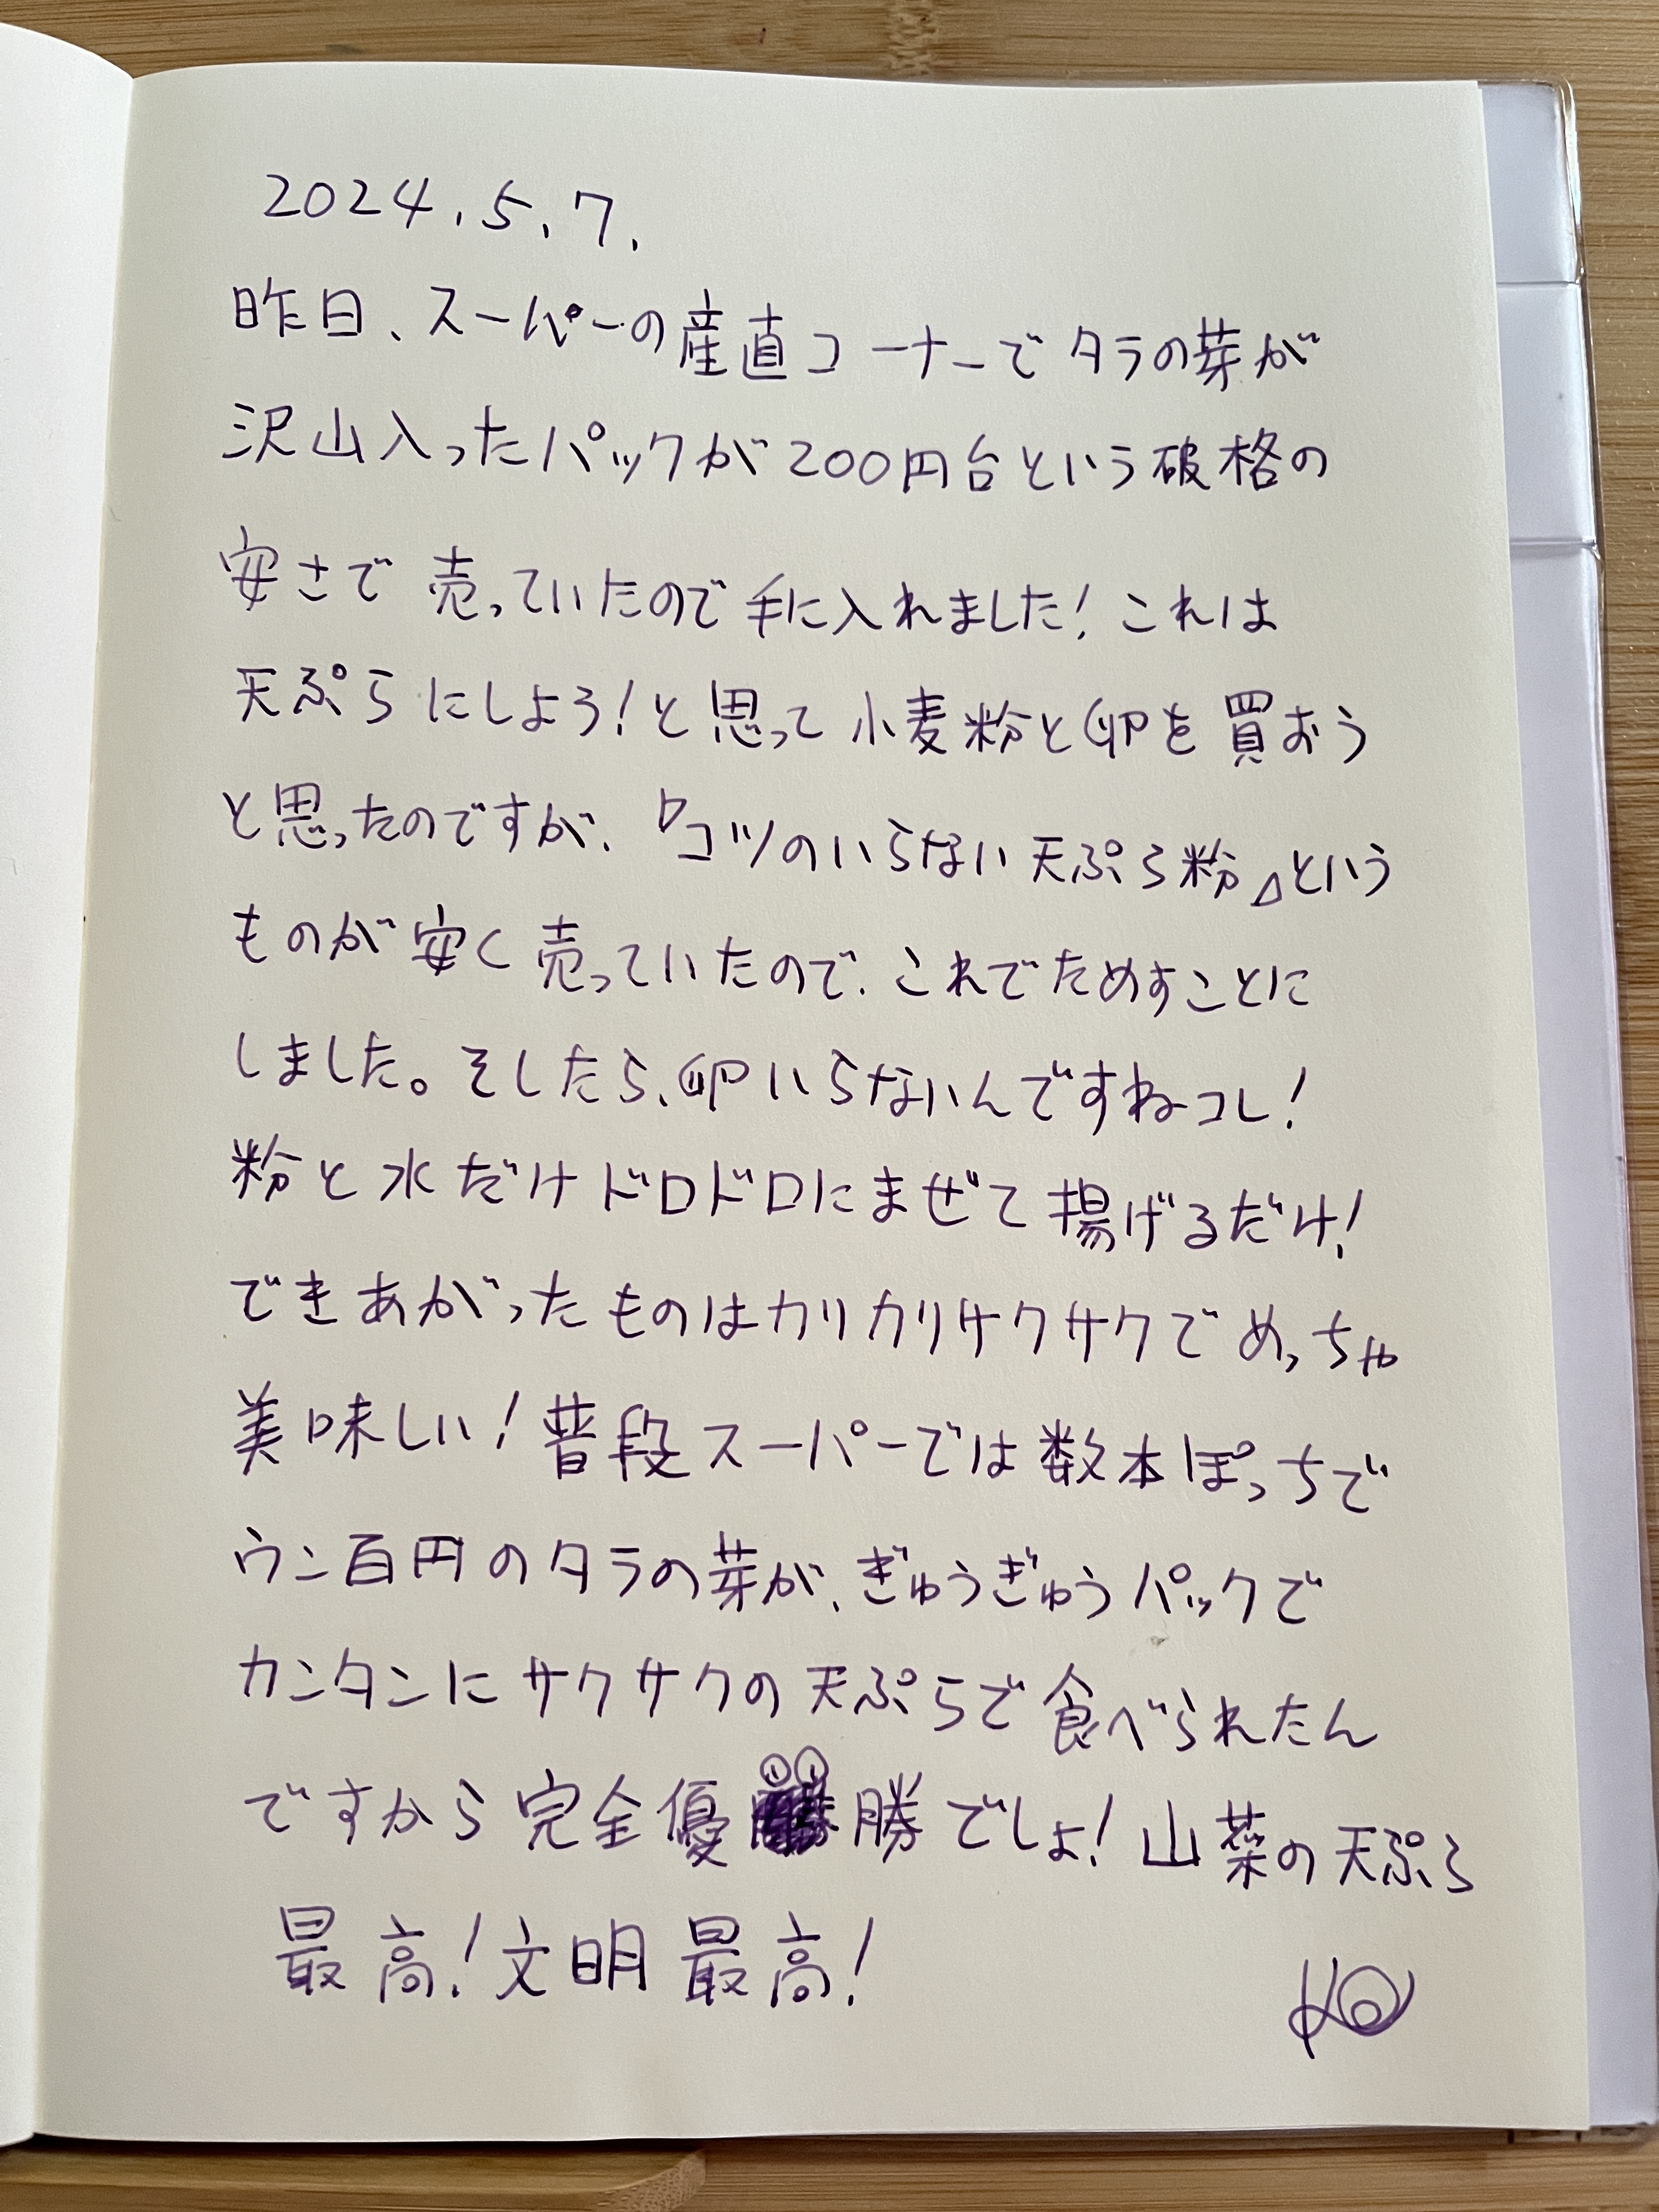 2024.5.7.
昨日、スーパーの産直コーナーでタラの芽が
沢山入ったパックが200円台という破格の
安さで売っていたので手に入れました!これは
天ぷらにしよう!と思って小麦粉と卵を買おう
と思ったのですが、『コツのいらない天ぷら粉』という
ものが安く売っていたので、これでためすことに
しました。そしたら、卵いらないんですねコレ!
粉と水だけドロドロにまぜて揚げるだけ!
できあがったものはカリカリサクサクでめっちゃ
美味しい!普段スーパーでは数本ぽっちで
ウン百円のタラの芽が、ぎゅうぎゅうパックで
カンタンにサクサクの天ぷらで食べられたん
ですから完全優勝でしょ!山菜の天ぷら
最高!文明最高!